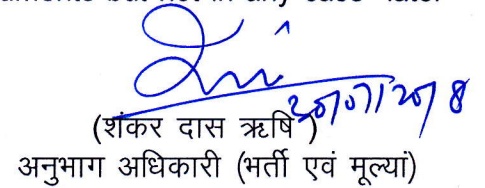 but not in any case later
(शंकर दास ऋषि)
अनुभाग अधिकारी (भर्ती एवं मूल्यां)